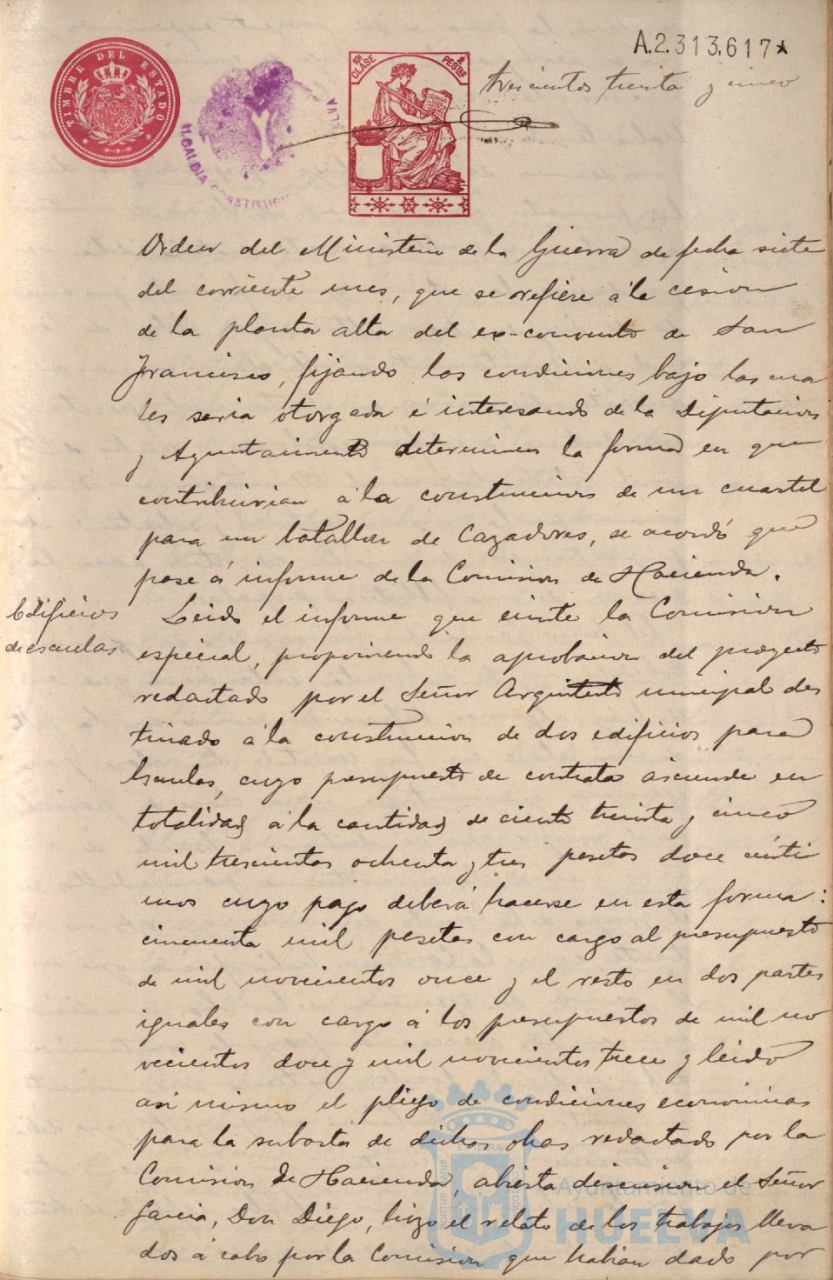 A.2.313.617*
TIMBRE DEL ESTADO
ALCALDÍA CONSTITUCIO
10ª CLASE 2 PESETAS
trescientos treinta y cinco
Orden del Ministerio de la Guerra de fecha siete
del corriente mes, que se refiere á la cesion
de la planta alta del ex-convento de San
Francisco, fijando las condiciones bajo las cua
les seria otorgada é interesando de la Diputacion
y Ayuntamiento determinen la forma en que
contribuirian á la construccion de un cuartel
para un batallon de Cazadores, se acordó que
pase á informe de la Comision de Hacienda.
Edificios
de escuelas
Leido el informe que emite la Comision
especial, proponiendo la aprobacion del proyecto
redactado por el Señor Arquitecto municipal des
tinado á la construccion de dos edificios para
Escuelas, cuyo presupuesto de contrata asciende en
totalidad á la cantidad de ciento treinta y cinco
mil trescientos ochenta y tres pesetas doce cénti
mos cuyo pago deberá hacerse en esta forma:
cincuenta mil pesetas con cargo al presupuesto
de mil novecientos once y el resto en dos partes
iguales con cargo á los presupuestos de mil no
vecientos doce y mil novecientos trece y leido
asi mismo el pliego de condiciones economicas
para la subasta de dichas obras redactado por la
Comision de Hacienda, abierta discusion el Señor
Garcia, Don Diego, hizo el relato de los trabajos lleva
dos á cabo por la Comision que habian dado por
Ayuntamiento de
HUELVA